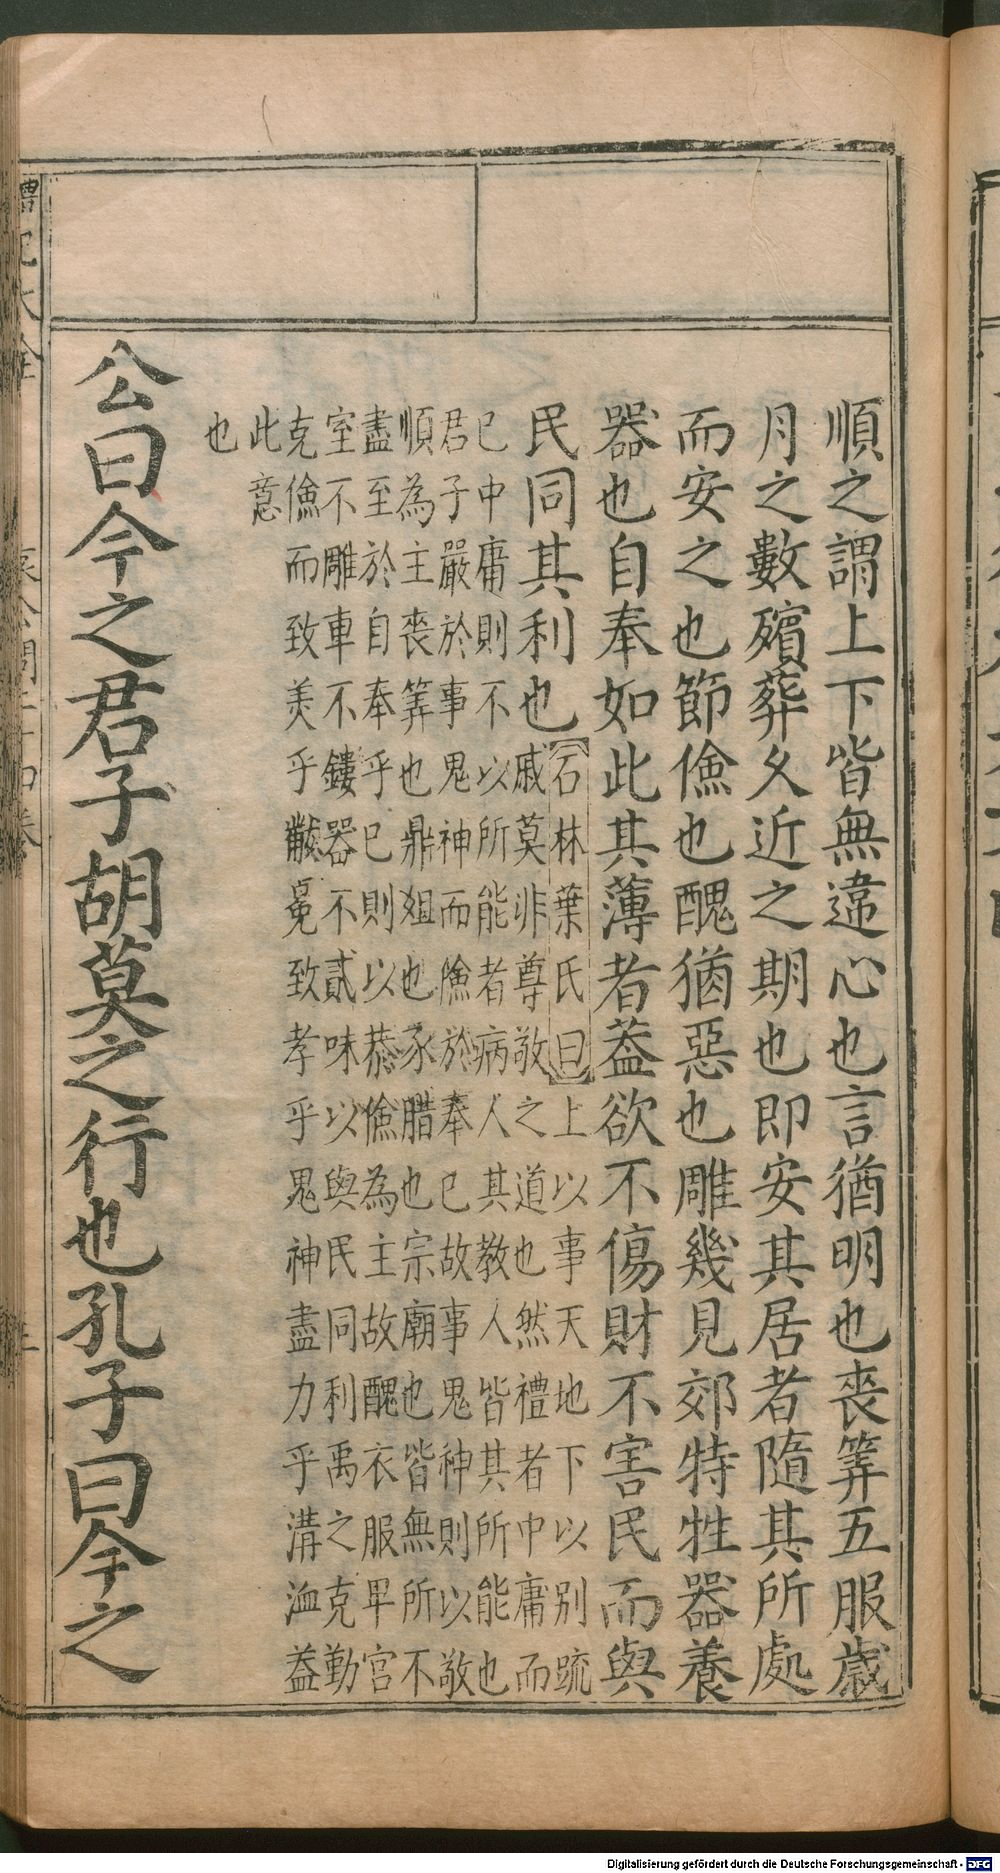 順之謂上下皆無違心也言猶明也喪筭五服歲
月之數殯葬久近之期也即安其居者隨其所處
而安之也節儉也醜猶惡也雕幾見郊特牲器養
器也自奉如此其薄者蓋欲不傷財不害民而與
民同其利也
石林葉氏曰上以事天地下以別䟽
戚莫非尊敬之道也然禮者中庸而
已中庸則不以所能者病人其教人皆其所能也
君子嚴於事鬼神而儉於奉已故事鬼神則以敬
順為主喪筭也鼎俎也豕腊也宗廟也皆無所不
盡至於自奉乎已則以恭儉為主故醜衣服卑宮
室不雕車不鏤器不貳味以與民同利禹之克勤
克儉而致美乎黻冕致孝乎鬼神盡力乎溝洫蓋
此意
也
公曰今之君子胡莫之行也孔子曰今之
禮記大全
Digitalisierung gefördert durch die Deutsche Forschungsgemeinschaft - DFG